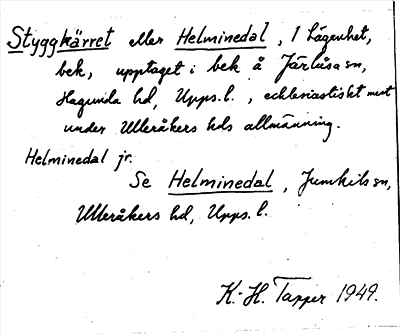 Styggkärret eller Helminedal, 1 Lägenhet,
bek, upptaget i bek å Järlåsa sn,
Hagunda hd, Upps.l., ecklesiastiskt mest
under Ulleråkers hds allmänning.
Helminedal jr.
Se Helminedal, Jumkils sn,
Ulleråkers hd, Upps.l.
K.-H. Tapper 1949.